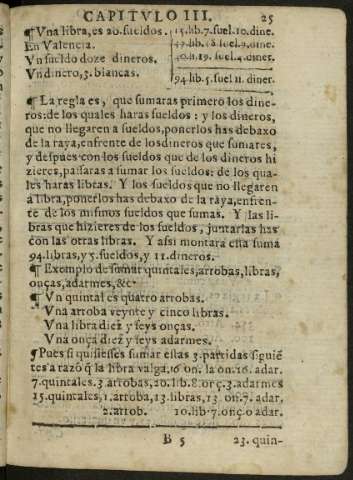 CAPITVLO III. 25
¶ Vna libra, es 20. sueldos. 15. lib. 7. suel. 10. dine.
En Valencia. 18. suel. 9. dine.
Vn sueldo doze dineros. 19. suel. 4. diner.
Vn dinero, 3. blancas. 94. lib. 5. suel 11. diner.
¶ La regla es, que sumaras primero los dine-
ros: de los quales haras sueldos: y los dineros,
que no llegaren a sueldos, ponerlos has debaxo
de la raya, enfrente de los dineros que sumares,
y despues con los sueldos que de los dineros hi
zieres, passaras a sumar los sueldos: de los qua-
les haras libras. Y los sueldos que no llegaren
a libra, ponerlos has debaxo de la raya, enfren-
te de los mismos sueldos que sumas. Y las li-
bras que hizieres de los sueldos, juntarlas has
con las otras libras. Y assi montara esta suma
94. libras, y 5. sueldos, y 11. dineros.
¶ Exemplo de sumar quintales, arrobas, libras,
onças, adarmes, &c.
¶ Vn quintal es quatro arrobas.
Vna arroba veynte y cinco libras.
Vna libra diez y seys onças.
Vna onça diez y seys adarmes.
¶ Pues si quisiesses sumar estas 3. partidas siguiē
tes a razō q̄ la libra valga. 16 on. la on. 16. adar.
7. quintales. 3. arrobas, 20. lib. 8. or ç. 3. adarmes
15. quintales, 1. arroba, 13. libras, 13. on. 7. adar.
2. arrob. 10. lib. 7. onç. 0 adar.
B 5 23. quin-